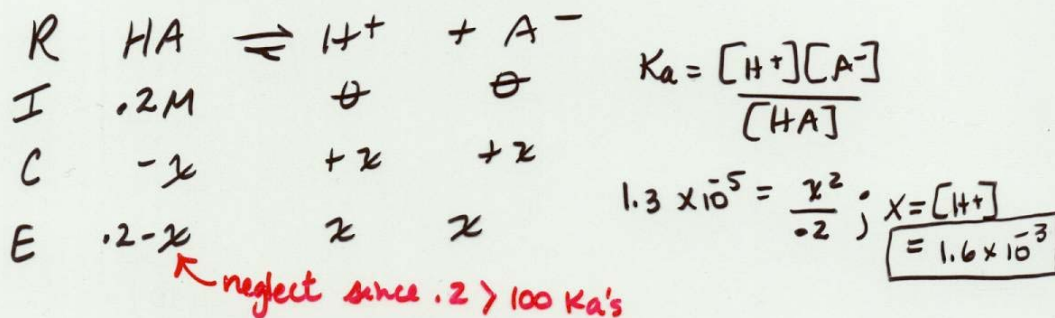 R HA ⇌ H⁺ + A⁻
I .2M 0 0
C -x +x +x
E .2-x x x
neglect since .2 > 100 Ka's
Ka = [H⁺][A⁻] / [HA]
1.3 x 10⁻⁵ = x² / .2 ; x = [H⁺]
= 1.6 x 10⁻³